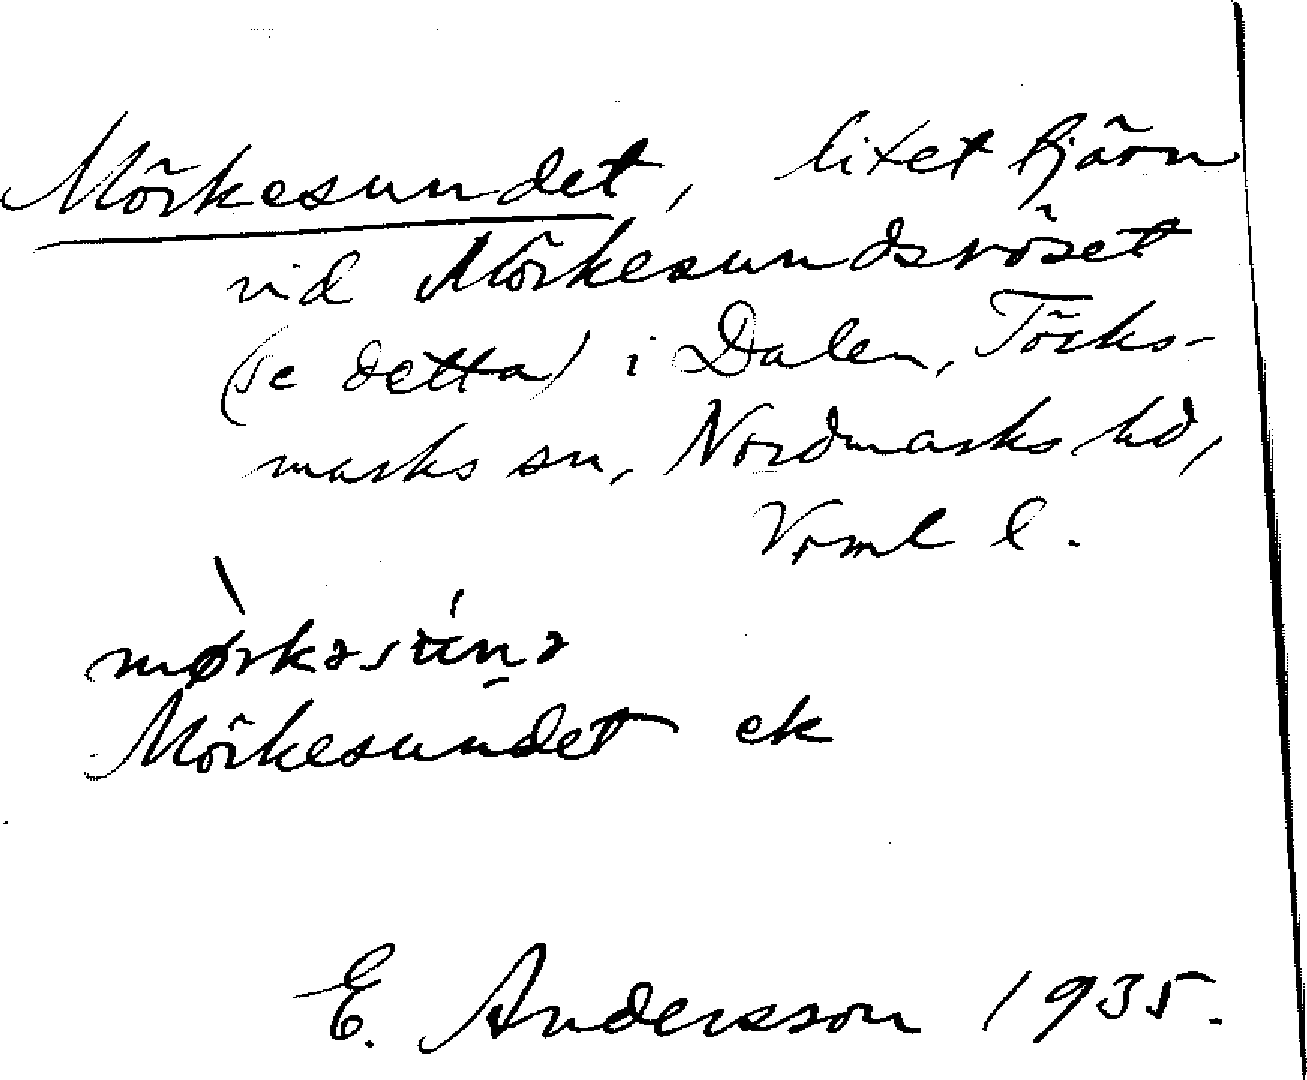 Mörkesundet, litet tjärn
vid Mörkesundsröset
(se detta) i Dalen, Töcks-
marks sn, Nordmarks hd,
Vrml l.
Mörkesundet ek
E. Andersson 1935.